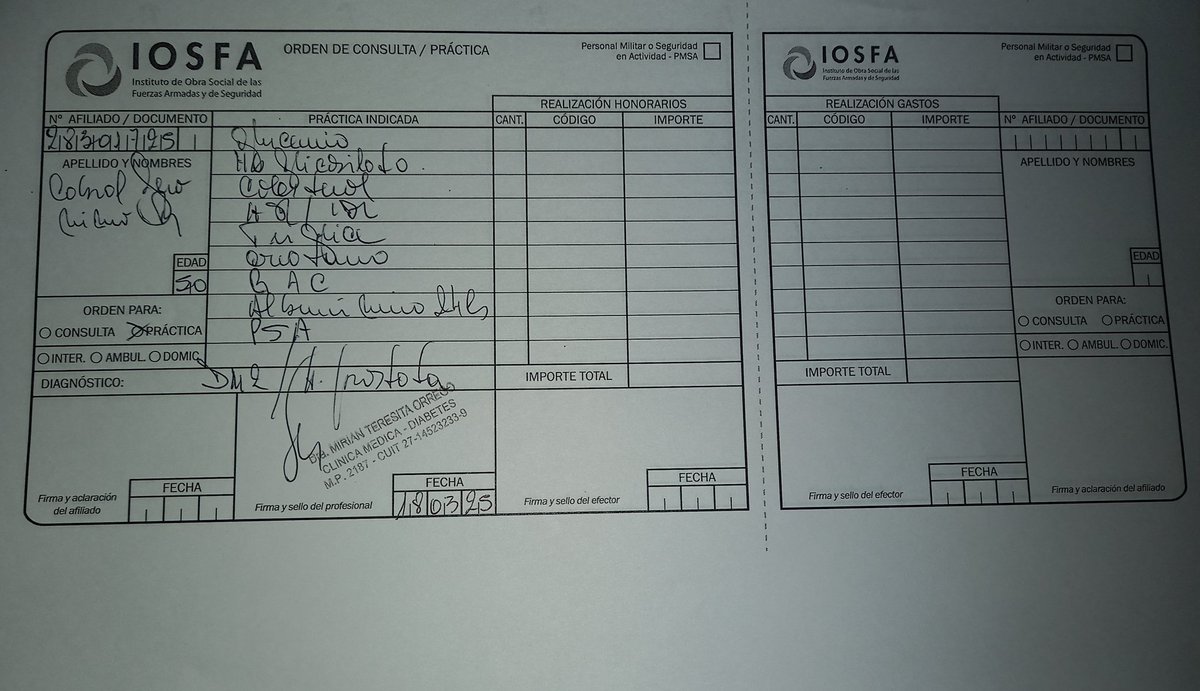 IOSFA
Instituto de Obra Social de las
Fuerzas Armadas y de Seguridad
ORDEN DE CONSULTA / PRÁCTICA
Personal Militar o Seguridad
en Actividad - PMSA
REALIZACIÓN HONORARIOS
Nº AFILIADO / DOCUMENTO
PRÁCTICA INDICADA
CANT.
CÓDIGO
IMPORTE
APELLIDO Y NOMBRES
Glucemia
HB Glicosilada
Colesterol
HDL / LDL
Creatinina
BAC
PSA
EDAD
50
ORDEN PARA:
CONSULTA
PRÁCTICA
INTER.
AMBUL.
DOMIC.
DIAGNÓSTICO:
DM2 / H. Prostata
IMPORTE TOTAL
Dra. MIRIAN TERESITA ORREGO
CLINICA MEDICA - DIABETES
M.P. 2187 - CUIT 27-14523233-9
Firma y aclaración
del afiliado
FECHA
Firma y sello del profesional
FECHA
18 03 25
Firma y sello del efector
FECHA
IOSFA
Instituto de Obra Social de las
Fuerzas Armadas y de Seguridad
Personal Militar o Seguridad
en Actividad - PMSA
REALIZACIÓN GASTOS
CANT.
CÓDIGO
IMPORTE
Nº AFILIADO / DOCUMENTO
APELLIDO Y NOMBRES
EDAD
ORDEN PARA:
CONSULTA
PRÁCTICA
INTER.
AMBUL.
DOMIC.
IMPORTE TOTAL
Firma y sello del efector
FECHA
Firma y aclaración del afiliado